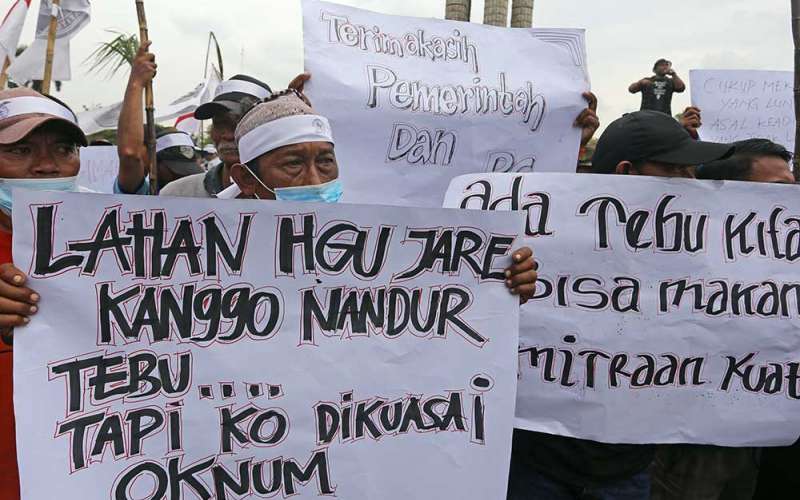 Terimakasih
Pemerintah
Dan
CUKUP
YANG
ASAL
LAHAN HGU JARE
KANGGO NANDUR
TEBU.....
TAPI KO DIKUASAI
OKNUM
Ada Tebu Kita
Bisa makan
mitraan Kuat